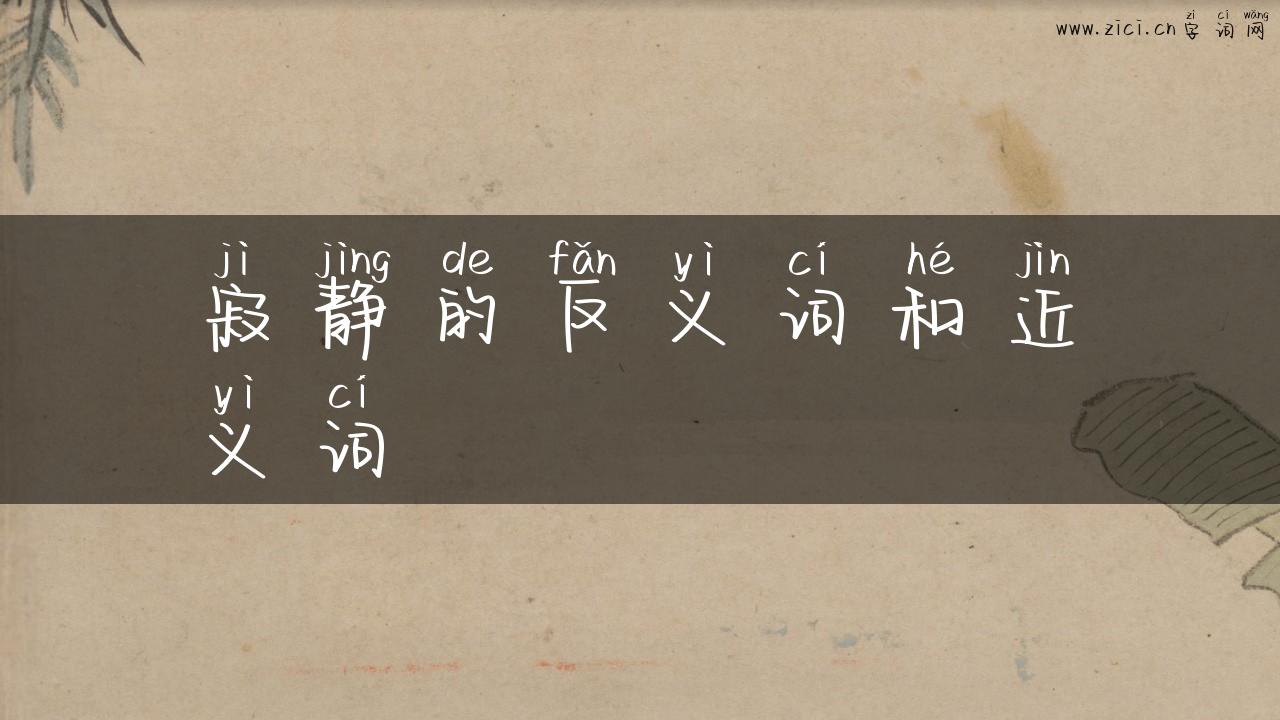 zì cí wǎng
www.zici.cn 字词网
jì jìng de fǎn yì cí hé jìn
寂静的反义词和近
yì cí
义词